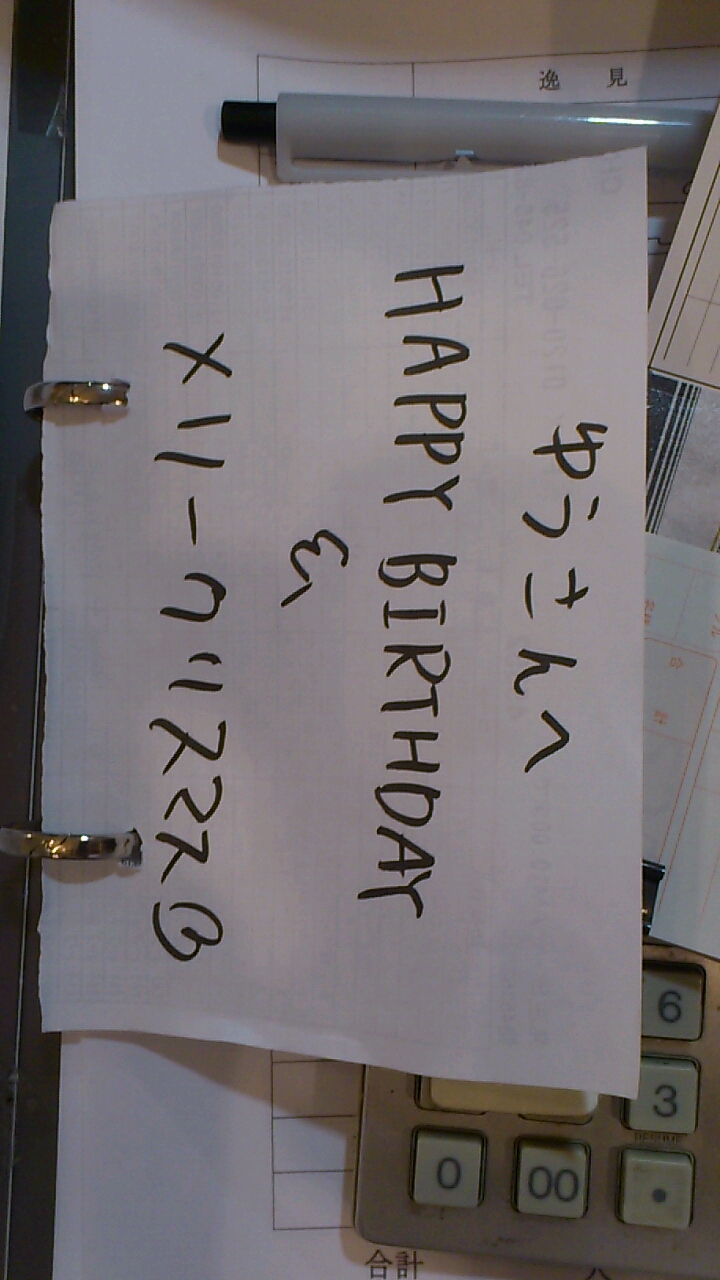 ゆうさんへ
HAPPY BIRTHDAY
&
メリークリスマス
逸見
6
3
0
00
.
合計